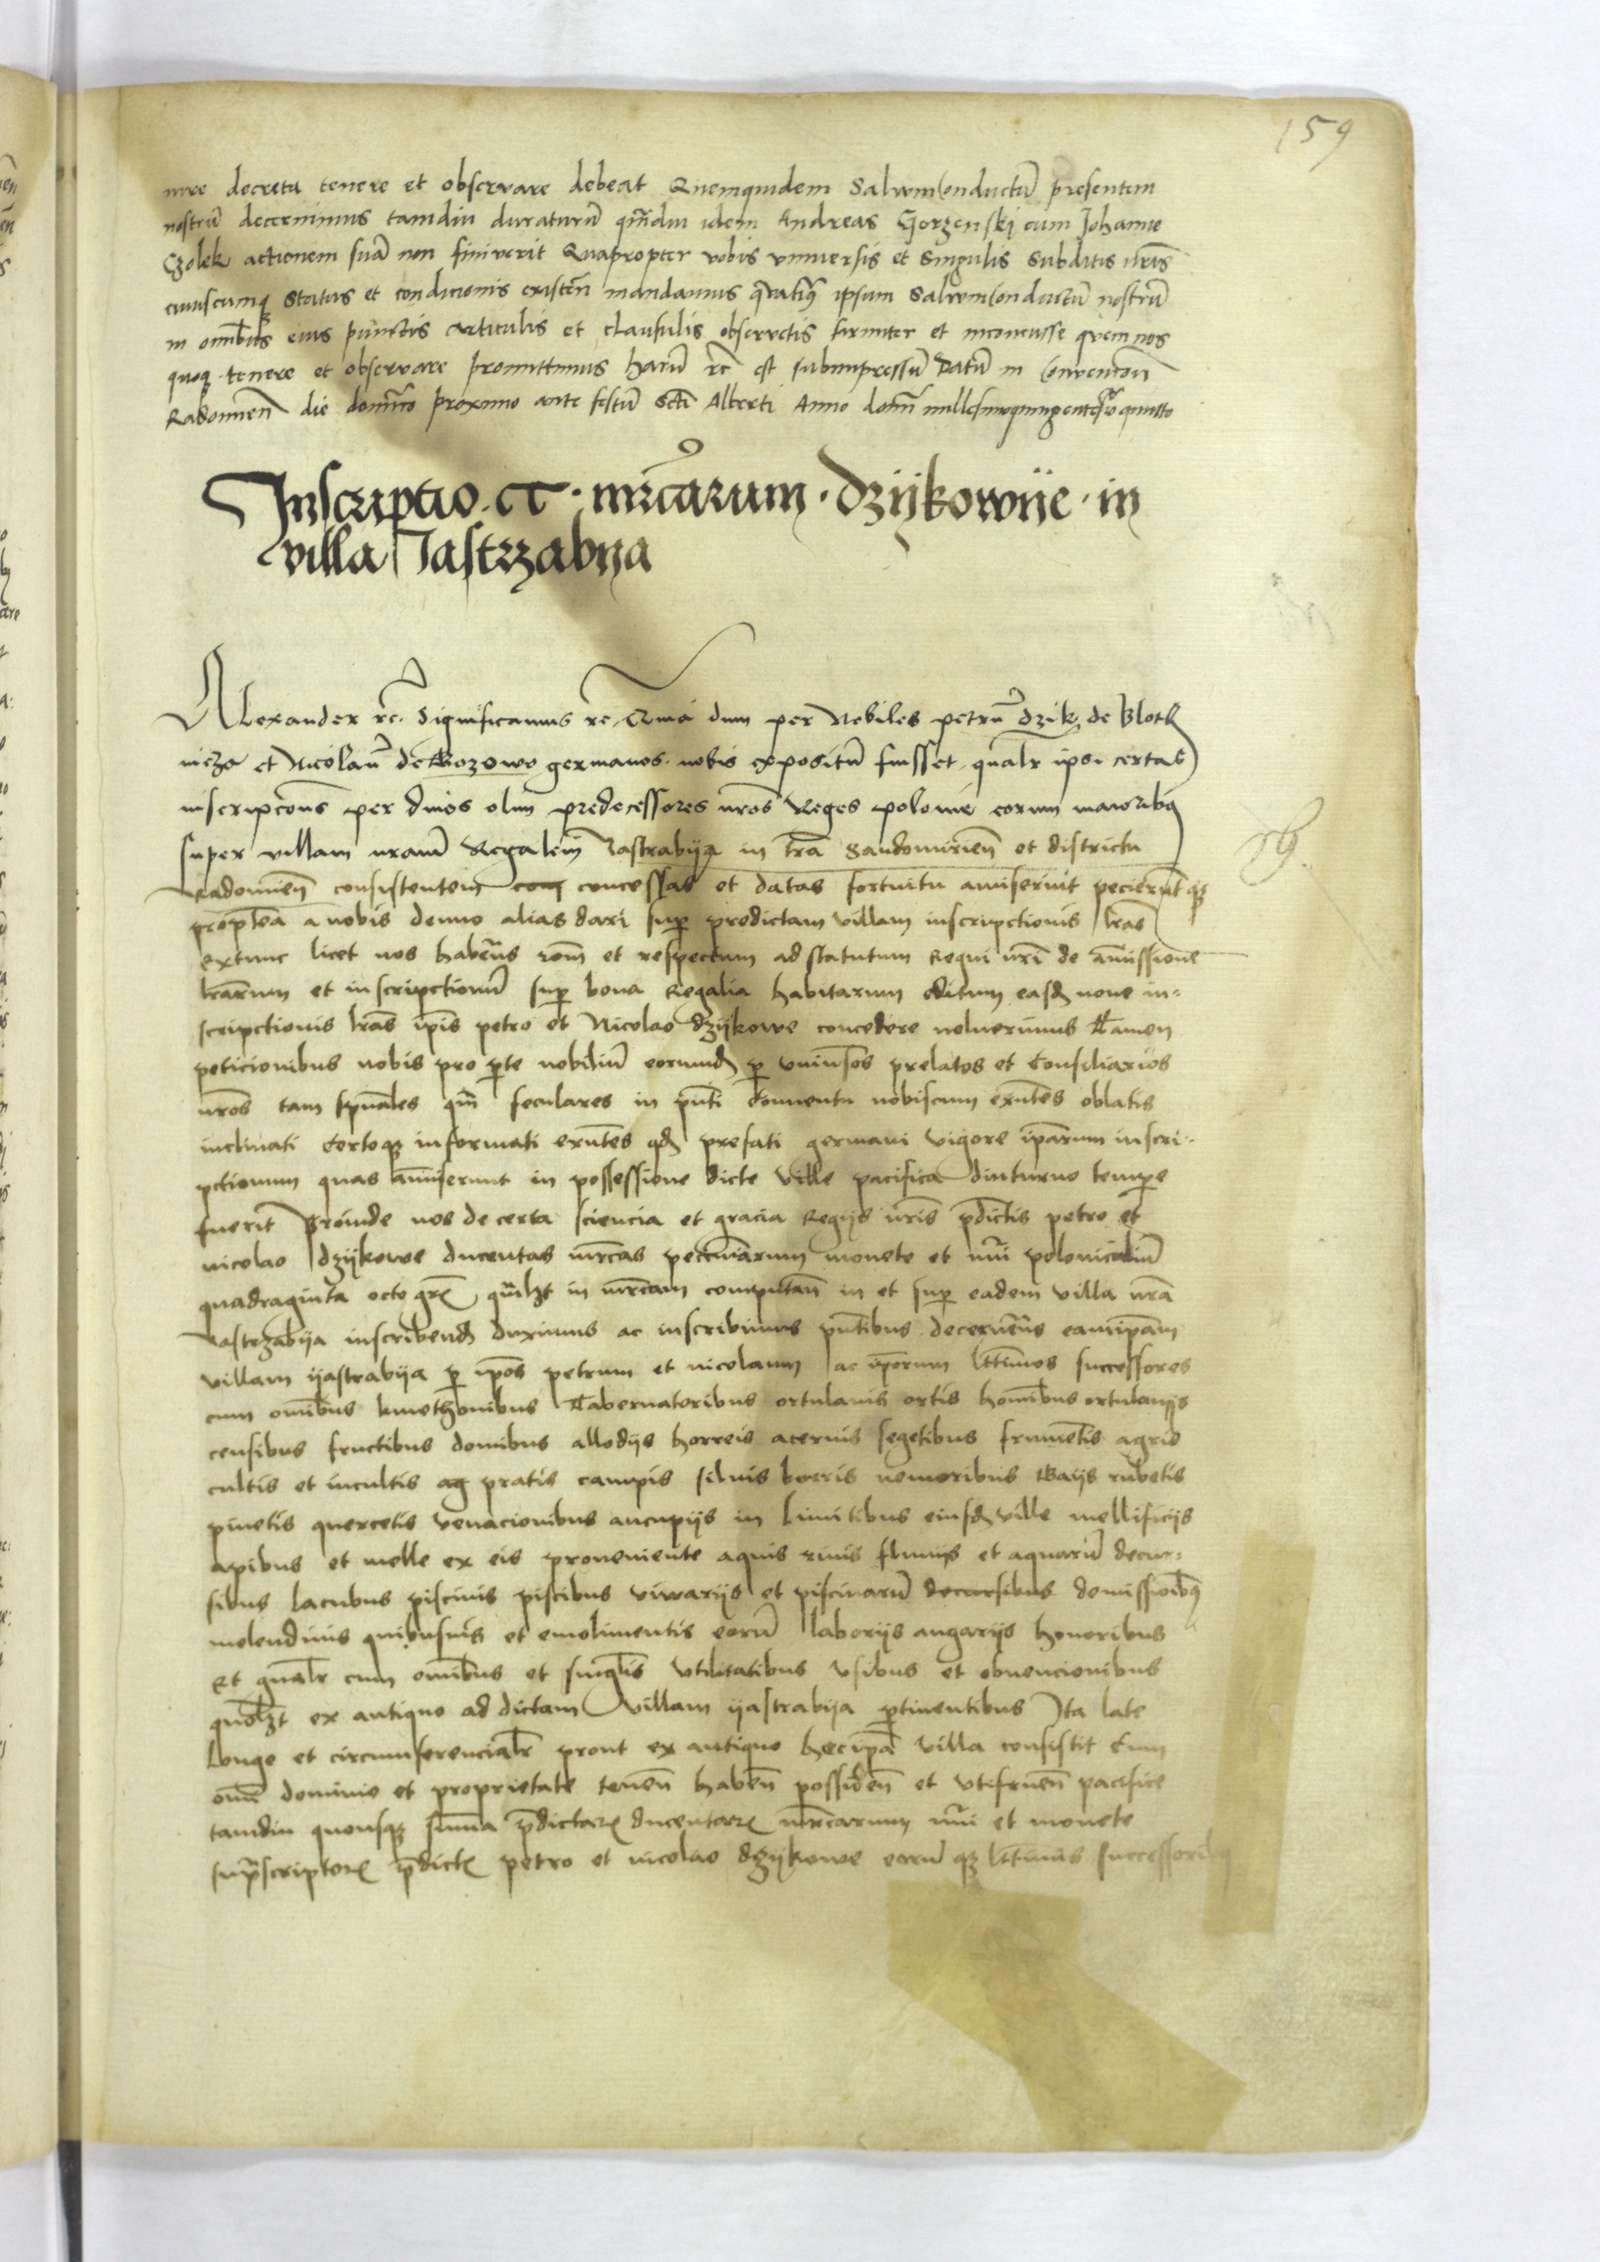 159
iure decreta tenere et observare debeat Quemquidem Salvumconductū presentem
nostrū decernimus tamdiu duraturū qm̄diu idem Andreas Gorzenski cum Johanne
Czolek actionem suā non finiverit Quapropter vobis universis et singulis subditis nr̄is
cuiuscumq status et condicionis existen̄ mandamus qr̄atiꝰ ipsum Salvumconductū nostrū
in omībus eius punctis articulis et clausulis observetis firmiter et inconcusse quem nos
quoq tenere et observare promittimus harū rc̄ est subimpressū Datū in Convencōn
Radomien̄ die domīco proximo ante festū Scti Alberti Anno domī millesimoquingentesīoquinto
Inscriptio · CC · mrcarum · dzijkowije · in
villa Jastrzabya
Alexander rc̄. Significamus rc̄ Quia dum per Nobiles petrū dzik de Bloth
nicza et Nicolaū de Bozowo germanos nobis expositū fuisset qualr̄ ipsi certas
inscripcōns per divos olim predecessores nr̄os Reges polonie eorum maioribꝰ
super villam nram̄ Regalem Jastrabija in tr̄a Sandomirien̄ et districtu
Radomien̄ consistentem concessas et datas fortuitu amiserint pecierūtqꝫ
proptea a nobis denuo alias dari sup predictam villam inscripctionis lr̄as
extunc licet nos habētes rōm et respectum ad statutum Regni nr̄i de amissione
lr̄arum et inscripctionū sup bona Regalia habitarum editum easd nove in-
scripctionis lr̄as ip̄is petro et Nicolao dzijkowe concedere noluerimus Tamen
peticionibus nobis pro pte nobiliū eorund p universos prelatos et Consiliarios
nr̄os tam spūales qm̄ seculares in pn̄ti Conventu nobiscum exn̄tes oblatis
inclinati Certoqꝫ informati exn̄tes qd prefati germani vigore ip̄arum inscri-
pctionum quas amiserunt in possessione dicte ville pacifica diuturno tempe
fuerit Proinde nos de certa sciencia et gracia Regijs nr̄is pdictis petro et
nicolao dzijkowe ducentas mrcas peccuniarum monete et nūi polonicaliū
quadraginta octo gr̄ qm̄lzt in mrcam computan̄ in et sup eadem villa nr̄a
Jastrzabija inscribend duximus ac inscribimus pn̄tibus decernētes eamip̄am
villam ijastrabija p ip̄os petrum et nicolaum ac ip̄orum ltt̄imos successores
cum omībus kmethonibus Tabernatoribus ortulanis ortis homībus ortulanijs
censibus fructibus domibus allodijs horreis acervis segetibus frumentis agris
cultis et incultis ag pratis campis silvis boeris nemoribus Gaijs rubetis
pinetis quercetis venacionibus aucupijs in limitibus eiusd ville mellificijs
apibus et melle ex eis proveniente aquis rivis fluvijs et aquarū decur-
sibus lacubus piscinis piscibus vivarijs et piscinarū decursibus demissioībꝰ
molendinis quibusvis et emolimentis eorū laborijs angarijs honoribus
Et gnalr̄ cum omībus et singlis utilitatibus usibus et obvencionibus
quolzt ex antiquo ad dictam villam ijastrabija ptinentibus Ita late
longe et circumferencialr̄ prout ex antiquo hec ip̄a villa consistit Cum
omī dominio et proprietate tenen̄ haben̄ possiden̄ et utifruen̄ pacifice
tamdiu quousqꝫ summa pdictar̄ ducentar̄ mrcarum nūi et monete
suprascriptor̄ pdict̄ petro et nicolao dzijkowe eorūqꝫ ltt̄imis successoribꝰ